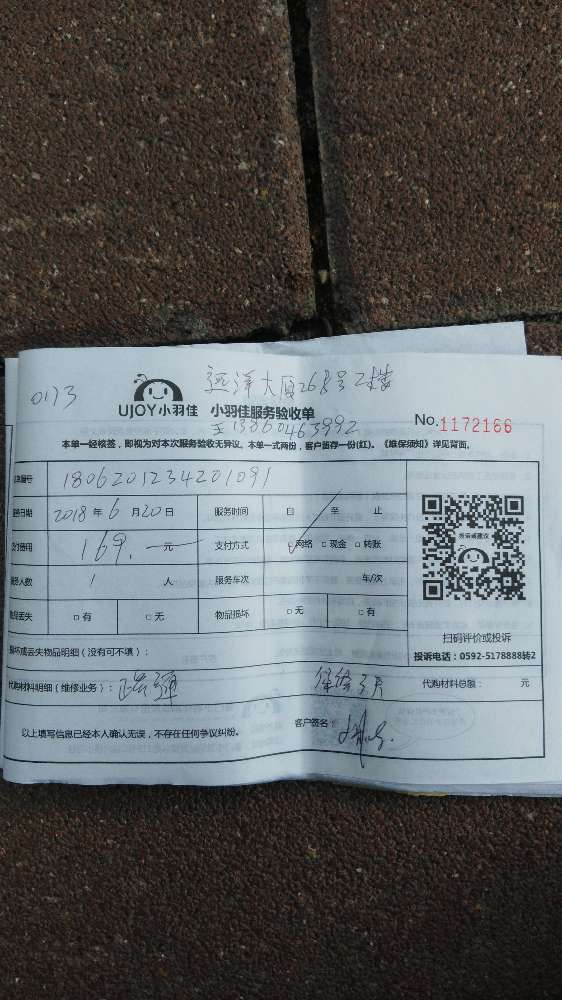 0173
远洋大厦268号2楼
UJOY小羽佳 小羽佳服务验收单
至13860463992
No.1172166
本单一经核签，即视为对本次服务验收无异议。本单一式两份，客户留存一份(红)。《维保须知》详见背面。
单编号 1806201234201091
务日期 2018 年 6 月 20 日 服务时间 自 至 止
支付费用 169. 元 支付方式 □网络 □现金 □转账
服务人数 1 人 服务车次 车/次
物品丢失 □有 □无 物品损坏 □无 □有
投诉或建议
扫码评价或投诉
投诉电话：0592-5178888转2
损坏或丢失物品明细（没有可不填）：
代购材料明细（维修业务）： 保修3天 代购材料总额： 元
以上填写信息已经本人确认无误，不存在任何争议纠纷。 客户签名：